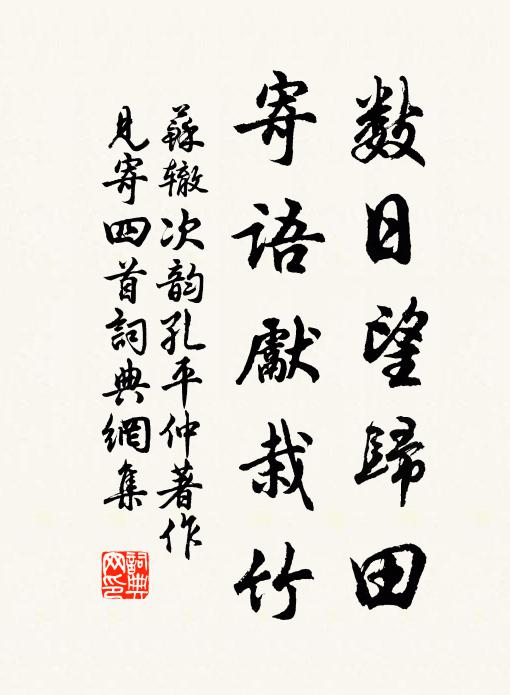 数日望歸田
寄語獻栽竹
蘇辙次韵孔平仲著作
見寄四首詞典網集
詞典网印